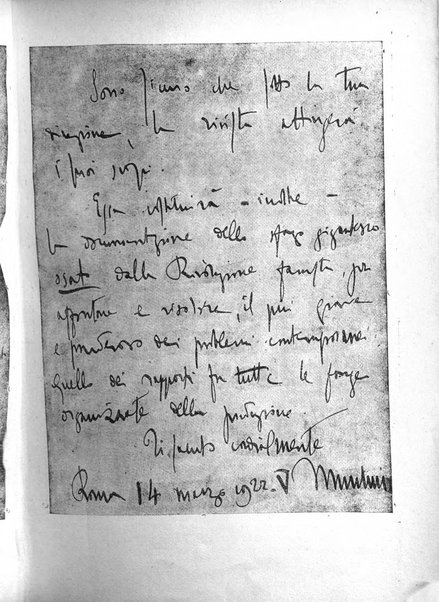 Sono sicuro che sotto la tua
direzione, la rivista attingerà
i suoi scopi.
Essa costituirà - inoltre -
la documentazione dello sforzo gigantesco
osato dalla Rivoluzione fascista, per
affrontare e risolvere, il più grave
e ponderoso dei problemi contemporanei:
quello dei rapporti fra tutte le forze
organizzate della produzione.
Ti saluto cordialmente
Roma 14 marzo 1927. V Mussolini